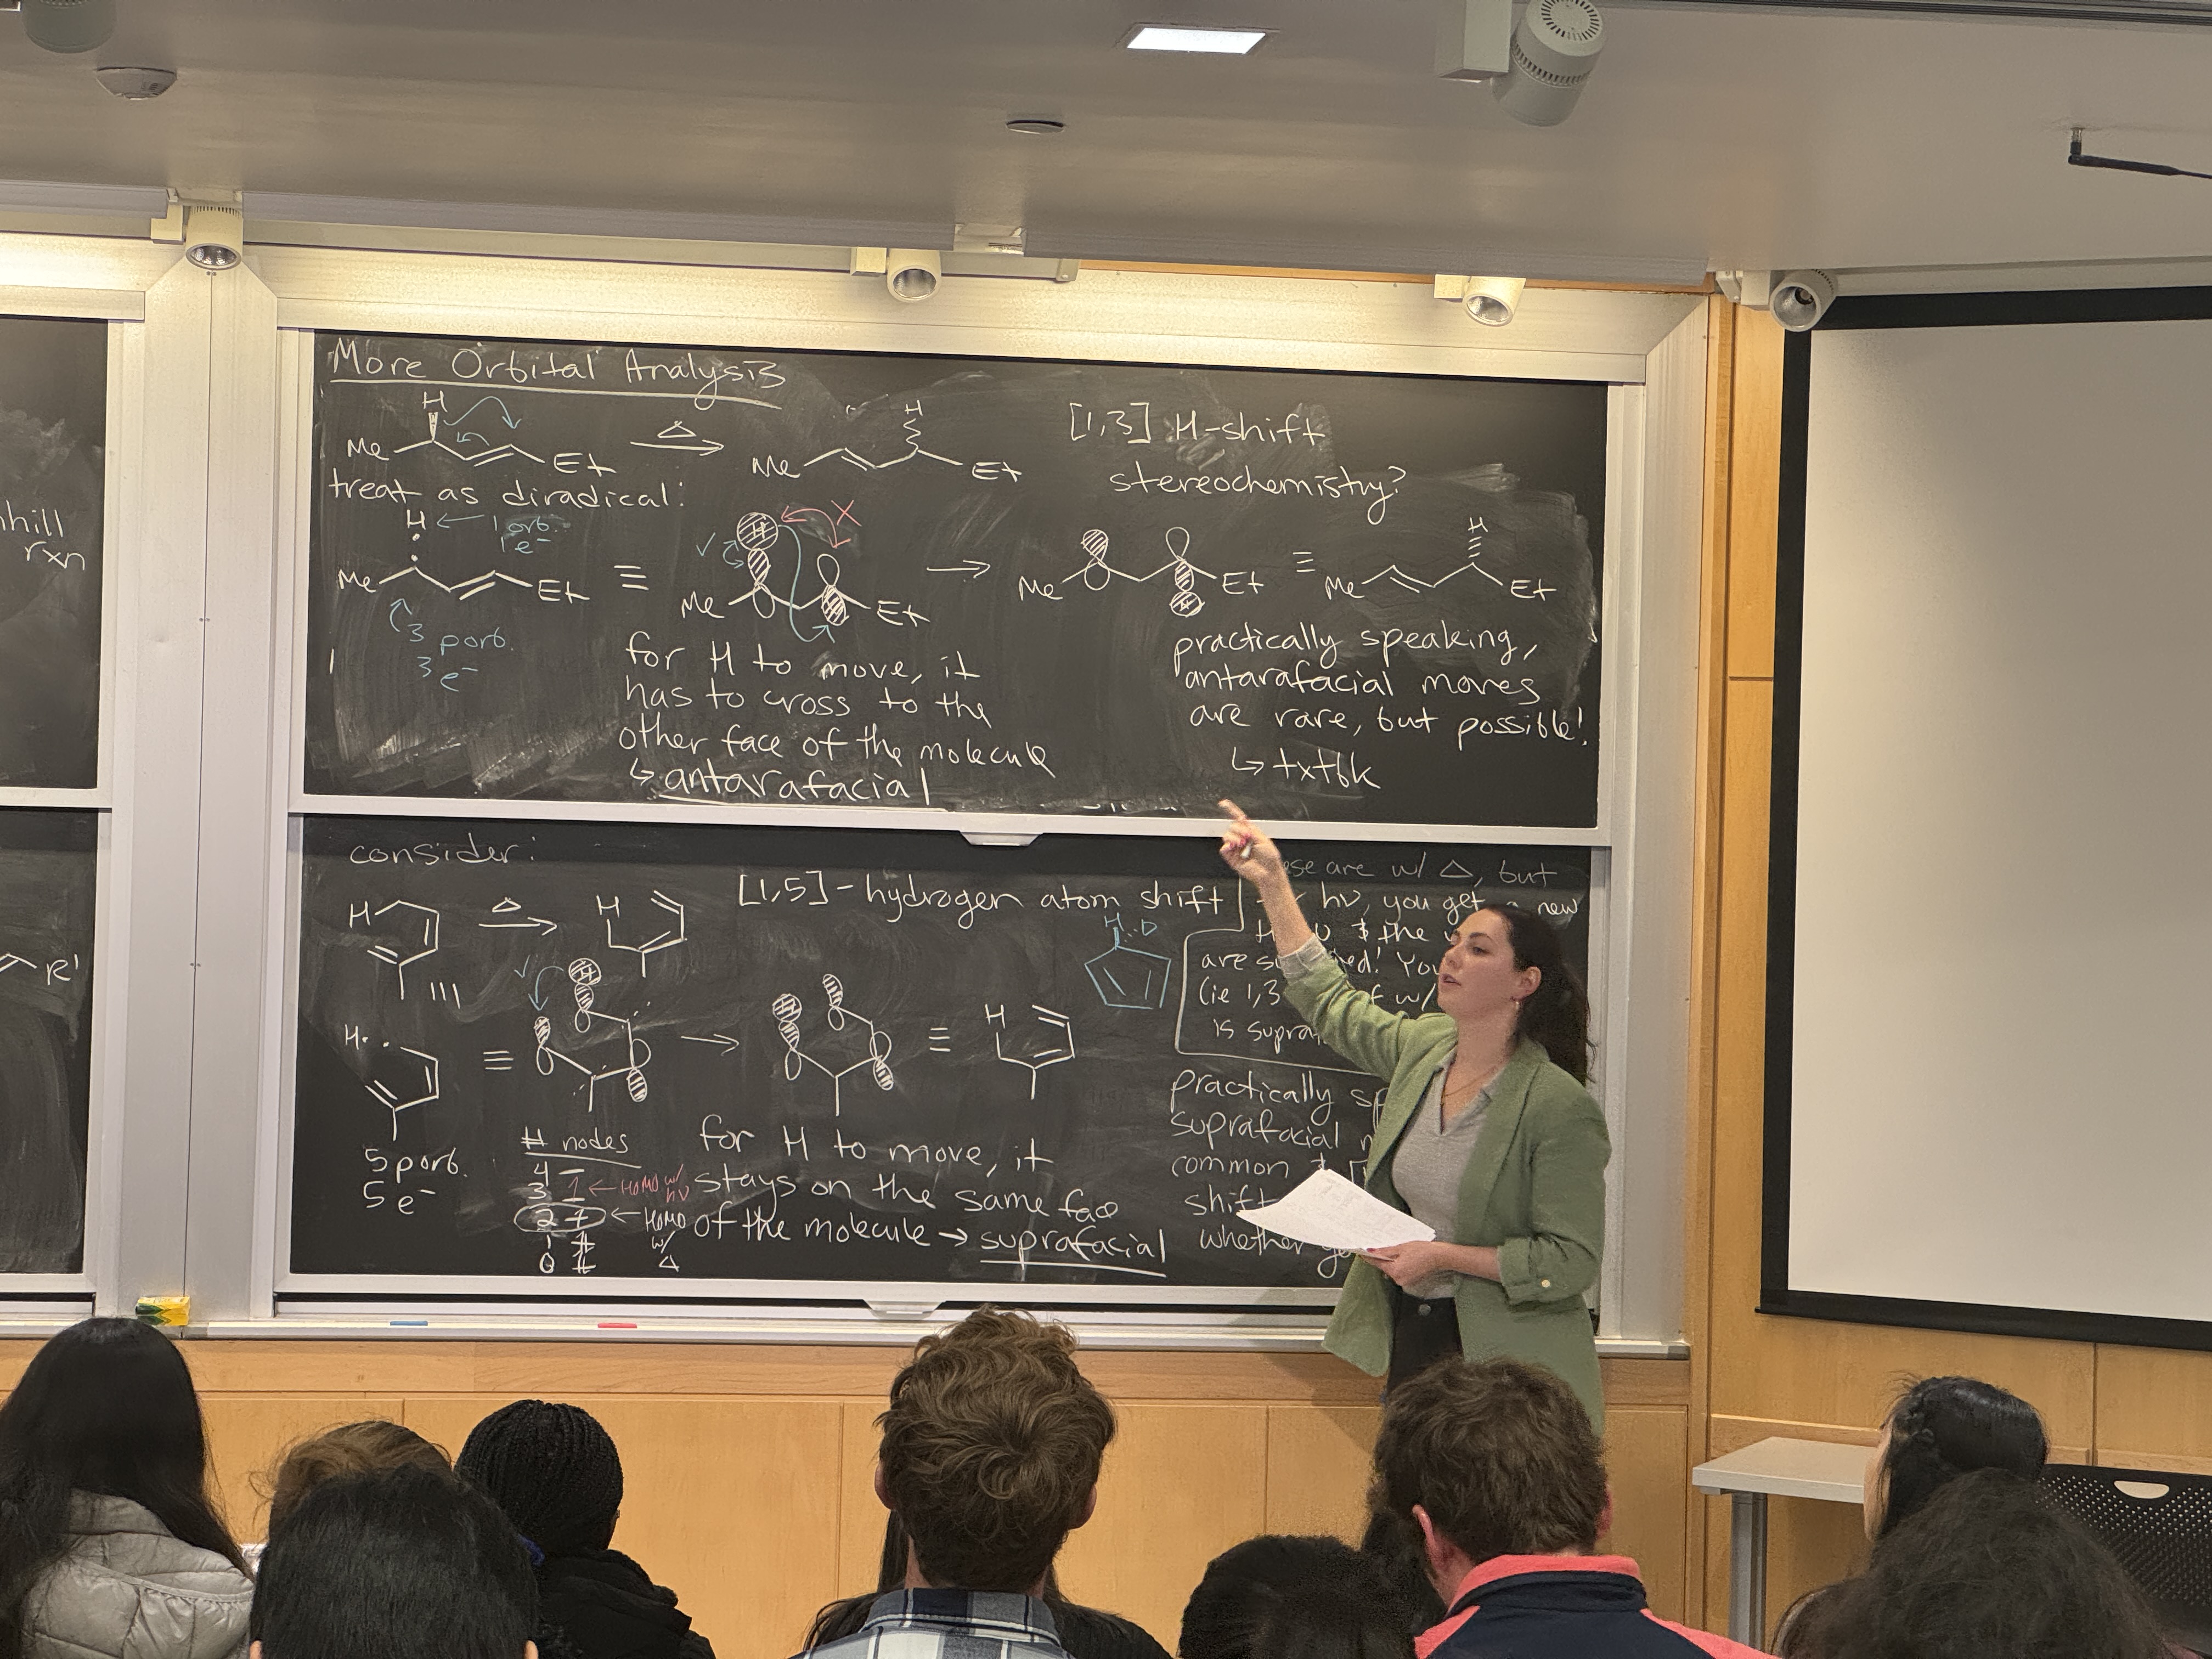 More Orbital Analysis
H
Me
Et
Δ
H
Me
Et
[1,3] H-shift
stereochemistry?
treat as diradical:
H ← 1 orb.
1 e⁻
Me
Et
3 p orb.
3 e⁻
≡
✓
H
X
Me
Et
→
Me
H
Et
≡
H
Me
Et
for H to move, it
has to cross to the
other face of the molecule
↳ antarafacial
practically speaking,
antarafacial moves
are rare, but possible!
↳ txtbk
hill
rxn
R'
consider:
H
Δ
H
[1,5] - hydrogen atom shift
H D
≡
H· ·
≡
✓
H
→
H
≡
H
5 p orb.
5 e⁻
# nodes
4
3 1 ← HOMO w/ hν
2 1 ← HOMO w/ Δ
1
0
for H to move, it
stays on the same face
of the molecule → suprafacial
are w/ Δ, but
hν, you get a new
& the
are You
(ie 1,3 w/
is
practically
suprafacial
common &
shift
whether